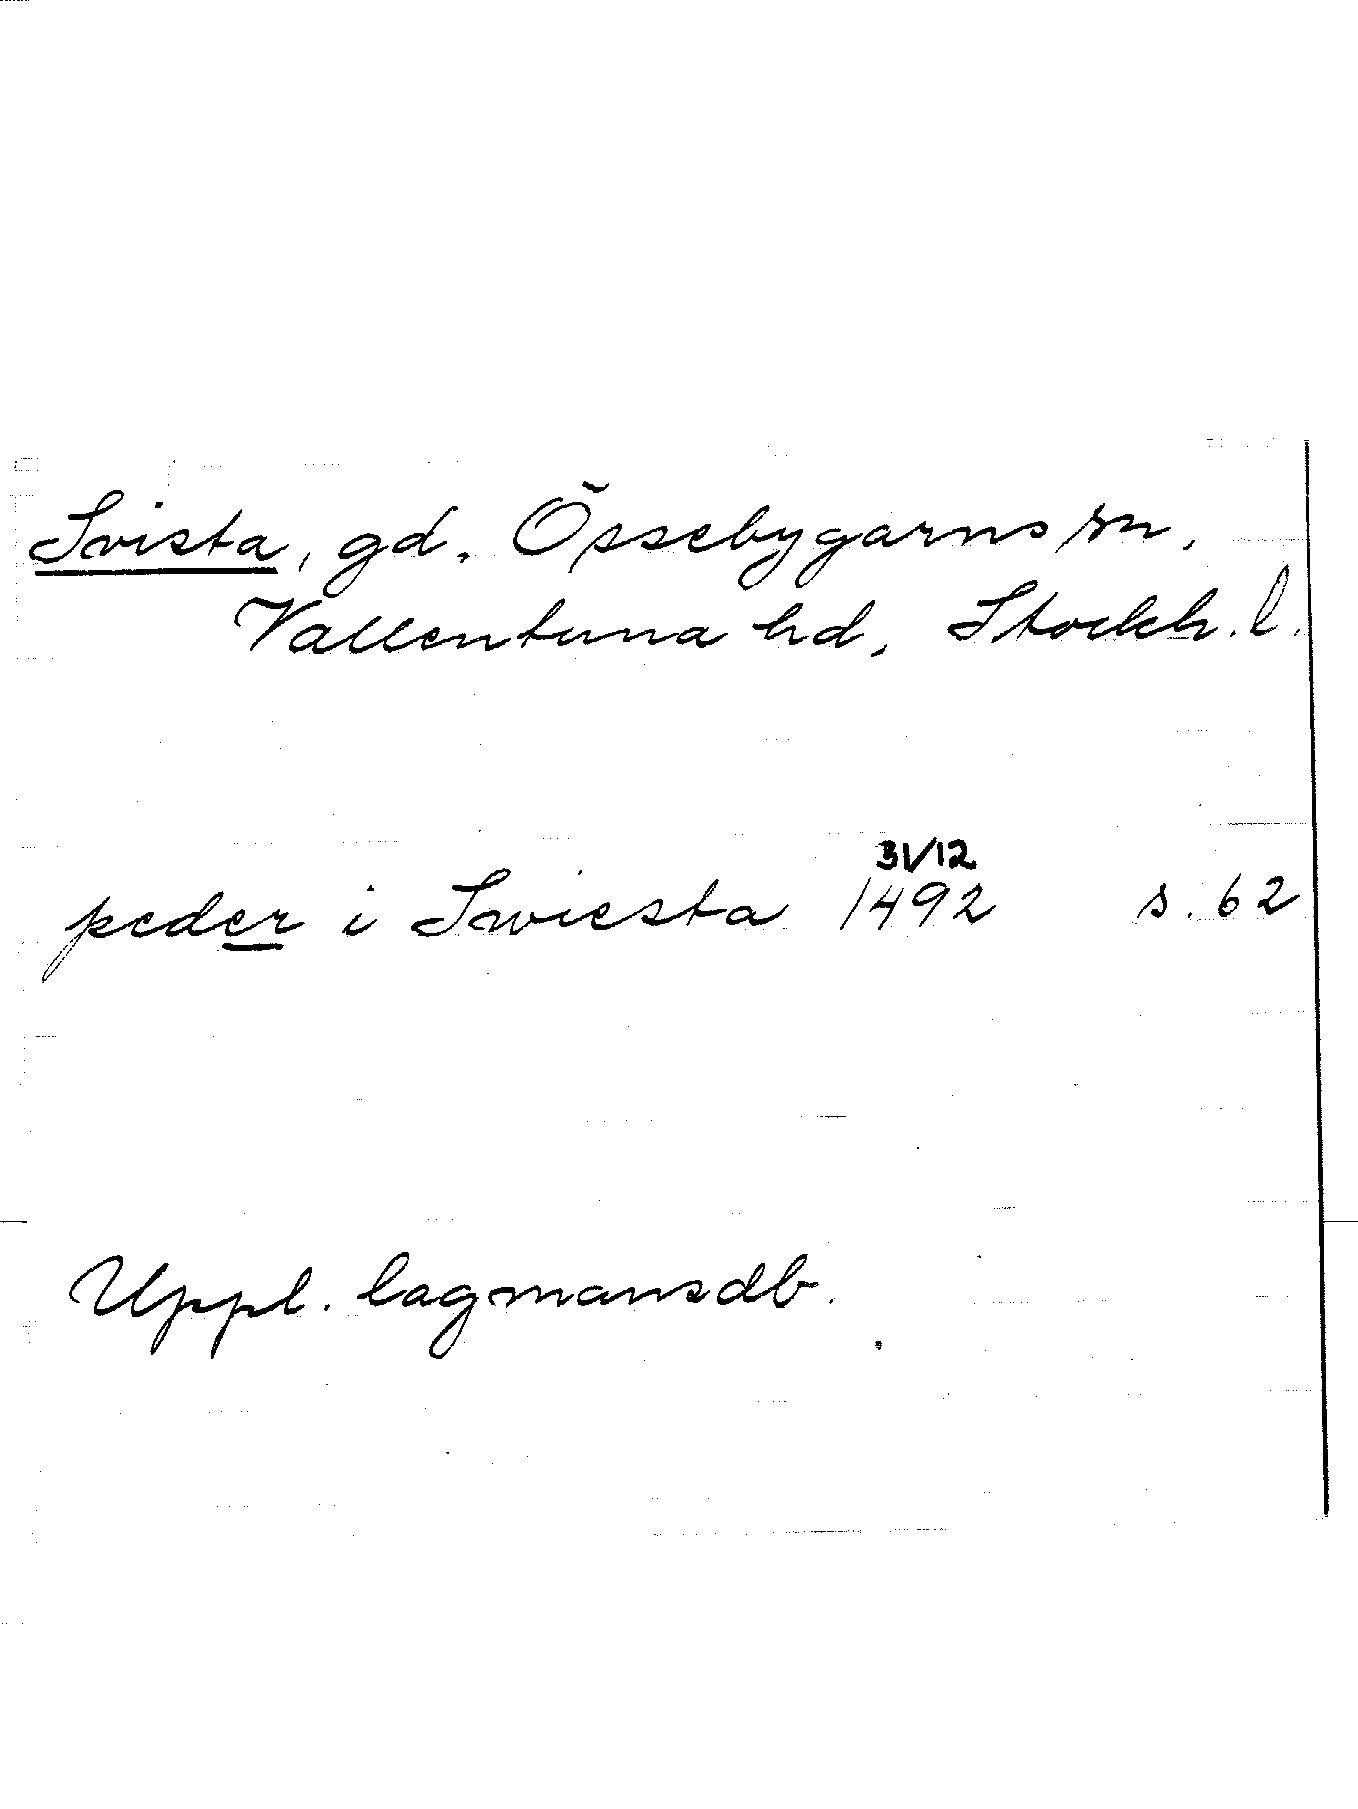 Svista, gd. Össebygarns sn,
Vallentuna hd, Stockh. l.
31/12
peder i Swiesta 1492 s. 62
Uppl. lagmansdb.